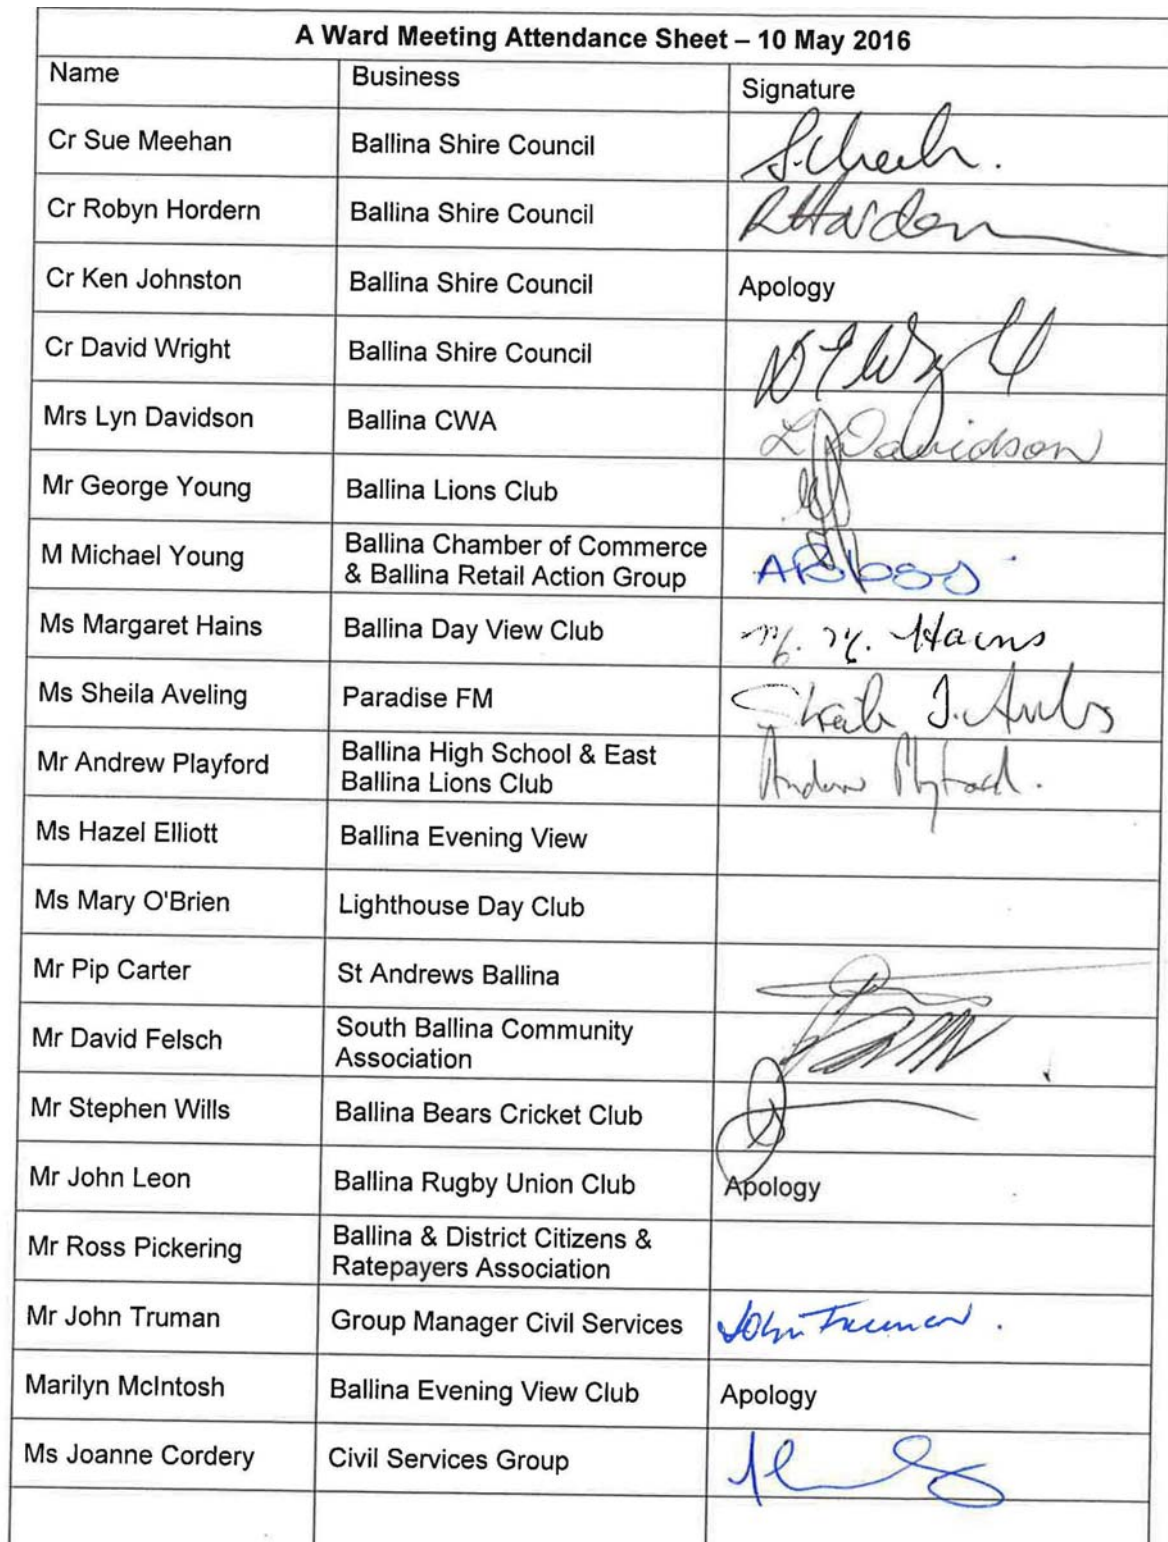 A Ward Meeting Attendance Sheet – 10 May 2016
Name Business Signature
Cr Sue Meehan Ballina Shire Council
Cr Robyn Hordern Ballina Shire Council RHordern
Cr Ken Johnston Ballina Shire Council Apology
Cr David Wright Ballina Shire Council
Mrs Lyn Davidson Ballina CWA L Davidson
Mr George Young Ballina Lions Club
M Michael Young Ballina Chamber of Commerce
& Ballina Retail Action Group
Ms Margaret Hains Ballina Day View Club M. M. Hains
Ms Sheila Aveling Paradise FM
Mr Andrew Playford Ballina High School & East
Ballina Lions Club Andrew Playford.
Ms Hazel Elliott Ballina Evening View
Ms Mary O'Brien Lighthouse Day Club
Mr Pip Carter St Andrews Ballina
Mr David Felsch South Ballina Community
Association
Mr Stephen Wills Ballina Bears Cricket Club
Mr John Leon Ballina Rugby Union Club Apology
Mr Ross Pickering Ballina & District Citizens &
Ratepayers Association
Mr John Truman Group Manager Civil Services John Truman.
Marilyn McIntosh Ballina Evening View Club Apology
Ms Joanne Cordery Civil Services Group